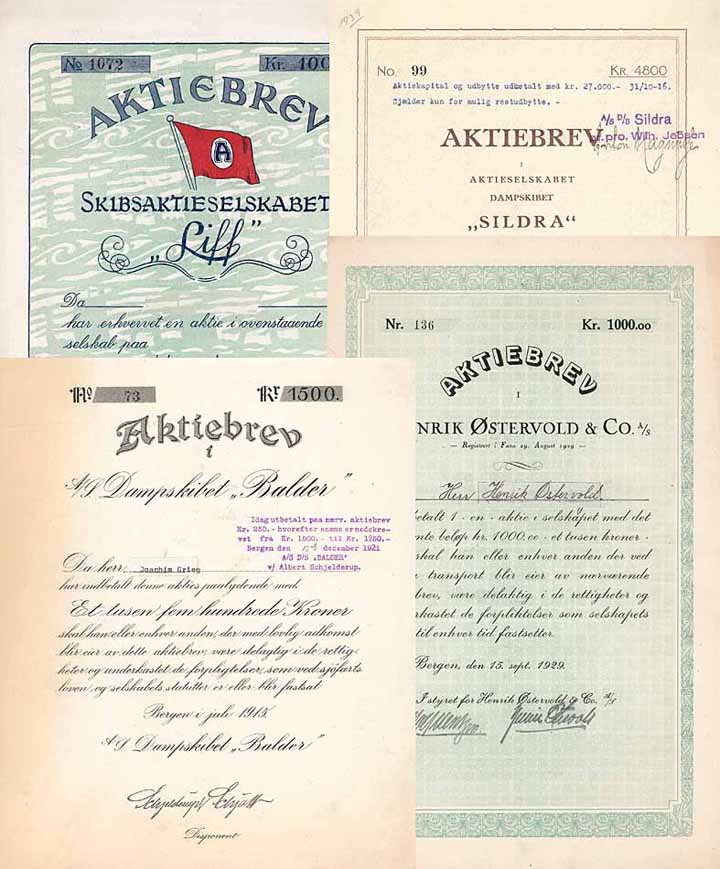 No 1072 Kr. 100
AKTIEBREV
A
SKIBSAKTIESELSKABET
„Liff"
Da
har erhvervet en aktie i ovenstaaende
selskab paa
1939
No. 99 Kr. 4800
Aktiekapital og udbytte udbetalt med kr. 27.000.- 31/10-16.
Gjælder kun for mulig restudbytte. -
A/S D/S Sildra
pr. pro. Wilh. Jebsen
AKTIEBREV
I
AKTIESELSKABET
DAMPSKIBET
„SILDRA"
Nr. 136 Kr. 1000.00
AKTIEBREV
I
NRIK ØSTERVOLD & CO. A/S
— Registrert i Fana 29. August 1929 —
Herr Henrik Østervold
etalt 1 - en - aktie i selskapet med det
nte beløp kr. 1000.00 - et tusen kroner -
skal han eller enhver anden der ved
transport blir eier av nærværende
brev, være delaktig i de rettigheter og
rkastet de forpliktelser som selskapets
til enhver tid fastsetter.
Bergen, den 15. sept. 1929.
I styret for Henrik Østervold & Co. A/S
No 73 Kr 1500.
Aktiebrev
i
A/S Dampskibet „Balder"
Idag utbetalt paa nærv. aktiebrev
Kr. 250.- hvorefter samme er nedskre-
vet fra Kr. 1500.- til Kr. 1250.-
Bergen den december 1921
A/S D/S „BALDER"
v/ Albert Schjelderup.
Da herr Joachim Grieg
har indbetalt denne akties paalydende med
Et tusen fem hundrede Kroner
skal han eller enhver anden, der med lovlig adkomst
blir eier av dette aktiebrev, være delagtig i de rettig-
heter og underkastet de forpligtelser, som ved sjöfarts
loven, og selskabets statutter er eller blir fastsat
Bergen i juli 1915.
A/S Dampskibet „Balder"
Disponent